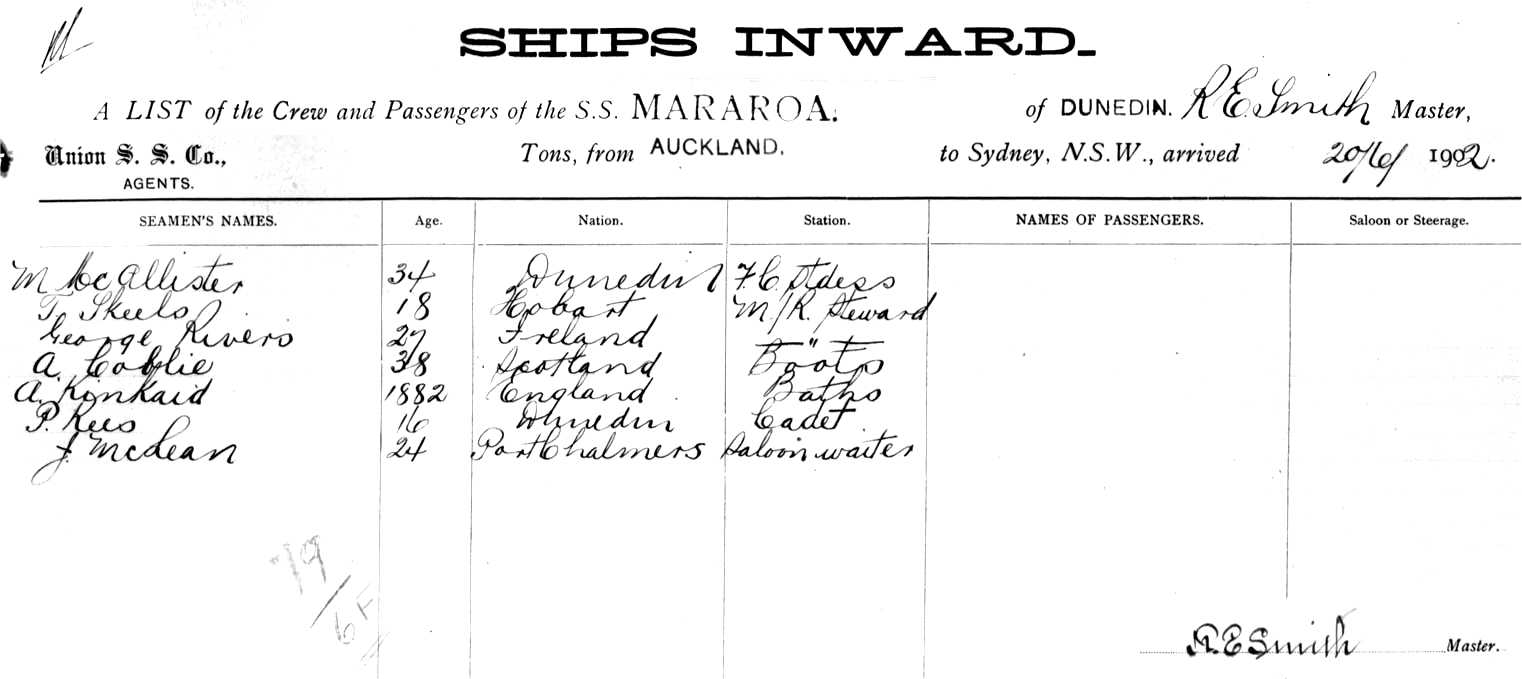 SHIPS INWARD.
A LIST of the Crew and Passengers of the S.S. MARAROA. of DUNEDIN. R E Smith Master,
Union S. S. Co., Tons, from AUCKLAND. to Sydney, N.S.W., arrived 20/6/ 1902.
AGENTS.
SEAMEN'S NAMES. Age. Nation. Station. NAMES OF PASSENGERS. Saloon or Steerage.
M McAllister 34 Dunedin F.C. Stdess
T. Skeels 18 Hobart M/R. Steward
George Rivers 27 Ireland — " —
A. Coblie 38 Scotland Boots
A. Kinkaid 1882 England Baths
P. Rees 16 Dunedin Cadet
J McLean 24 Port Chalmers Saloon waiter
79
/
6F
R. E Smith Master.